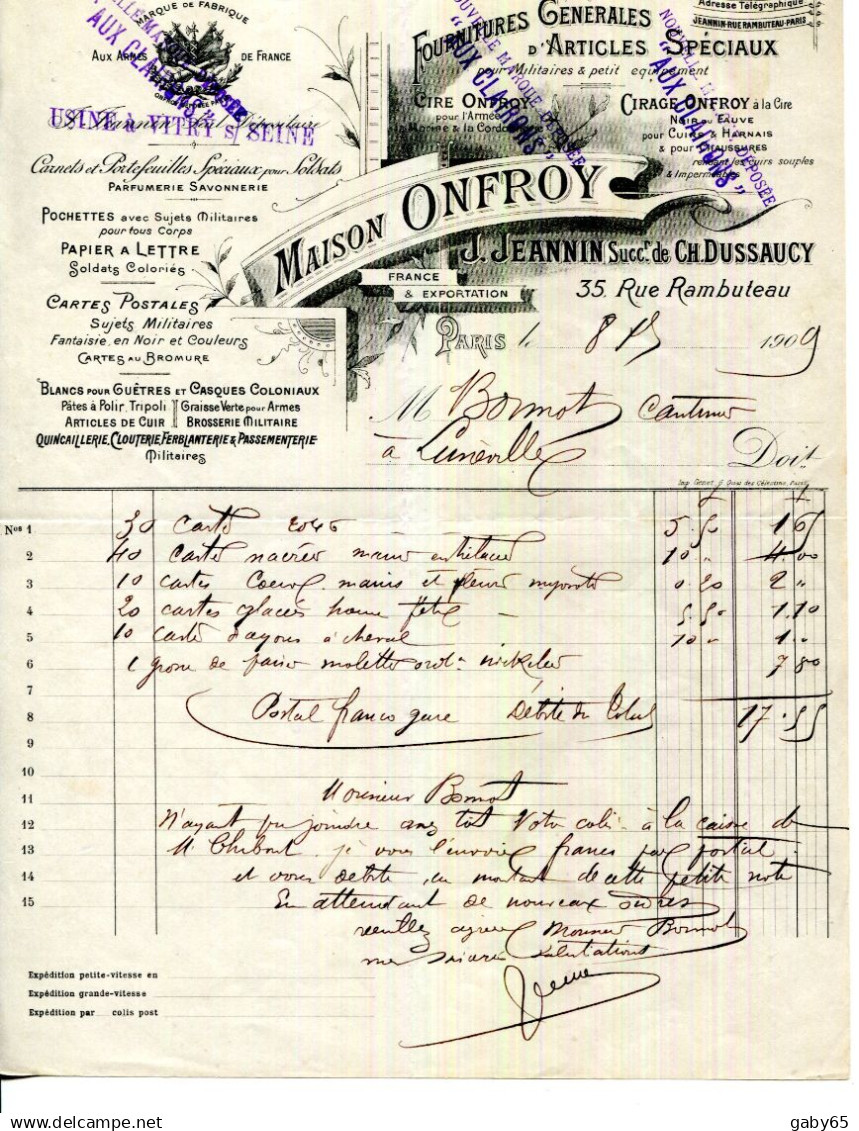 MARQUE DE FABRIQUE
AUX ARMES DE FRANCE
NOUVELLE MARQUE DÉPOSÉE
"AUX CLAIRONS"
USINE à VITRY s/ SEINE
Carnets et Portefeuilles Spéciaux pour Soldats
PARFUMERIE SAVONNERIE
POCHETTES avec Sujets Militaires
pour tous Corps
PAPIER A LETTRE
Soldats Coloriés
CARTES POSTALES
Sujets Militaires
Fantaisie, en Noir et Couleurs
CARTES AU BROMURE
BLANCS POUR GUÊTRES ET CASQUES COLONIAUX
Pâtes à Polir, Tripoli Graisse Verte pour Armes
ARTICLES DE CUIR BROSSERIE MILITAIRE
QUINCAILLERIE, CLOUTERIE, FERBLANTERIE & PASSEMENTERIE
Militaires
Adresse Télégraphique
JEANNIN-RUE RAMBUTEAU-PARIS
FOURNITURES GÉNÉRALES
D'ARTICLES SPÉCIAUX
pour Militaires & petit équipement
NOUVELLE MARQUE DÉPOSÉE
"AUX CLAIRONS"
NOUVELLE MARQUE DÉPOSÉE
"AUX CLAIRONS"
CIRE ONFROY
pour l'Armée
la Marine & la Cordonnerie
CIRAGE ONFROY à la Cire
NOIR ou FAUVE
pour CUIRS & HARNAIS
& pour CHAUSSURES
rendant les cuirs souples
& Imperméables
MAISON ONFROY
J. JEANNIN Succr. de CH. DUSSAUCY
FRANCE
& EXPORTATION
35, Rue Rambuteau
PARIS le 8 1909
M Bonnot Cantinier
à Lunéville Doit
Imp. Gesnet, 6, Quai des Célestins, Paris
Nos 1 30 carte 2046 5.50 1 65
2 40 cartes nacrées mains entrelacées 10 " 4.00
3 10 cartes Coeurs mains et fleurs myosotis 0.20 2 "
4 20 cartes glacées bonne fête 5.50 1.10
5 10 carte dragons à cheval 10 " 1 "
6 1 grosse de molette ordre nickelée 7 80
7
8 Postal franco gare Débité du Colis 17.55
9
10
11 Monsieur Bonnot
12 N'ayant pu joindre assez tôt Votre colis à la caisse de
13 M. je vous l'envoie franco par postal
14 et vous débite du montant de cette petite note
15 En attendant de nouveaux ordres
veuillez agréer Monsieur Bonnot
mes sincères salutations
Expédition petite-vitesse en
Expédition grande-vitesse
Expédition par colis post
gaby65